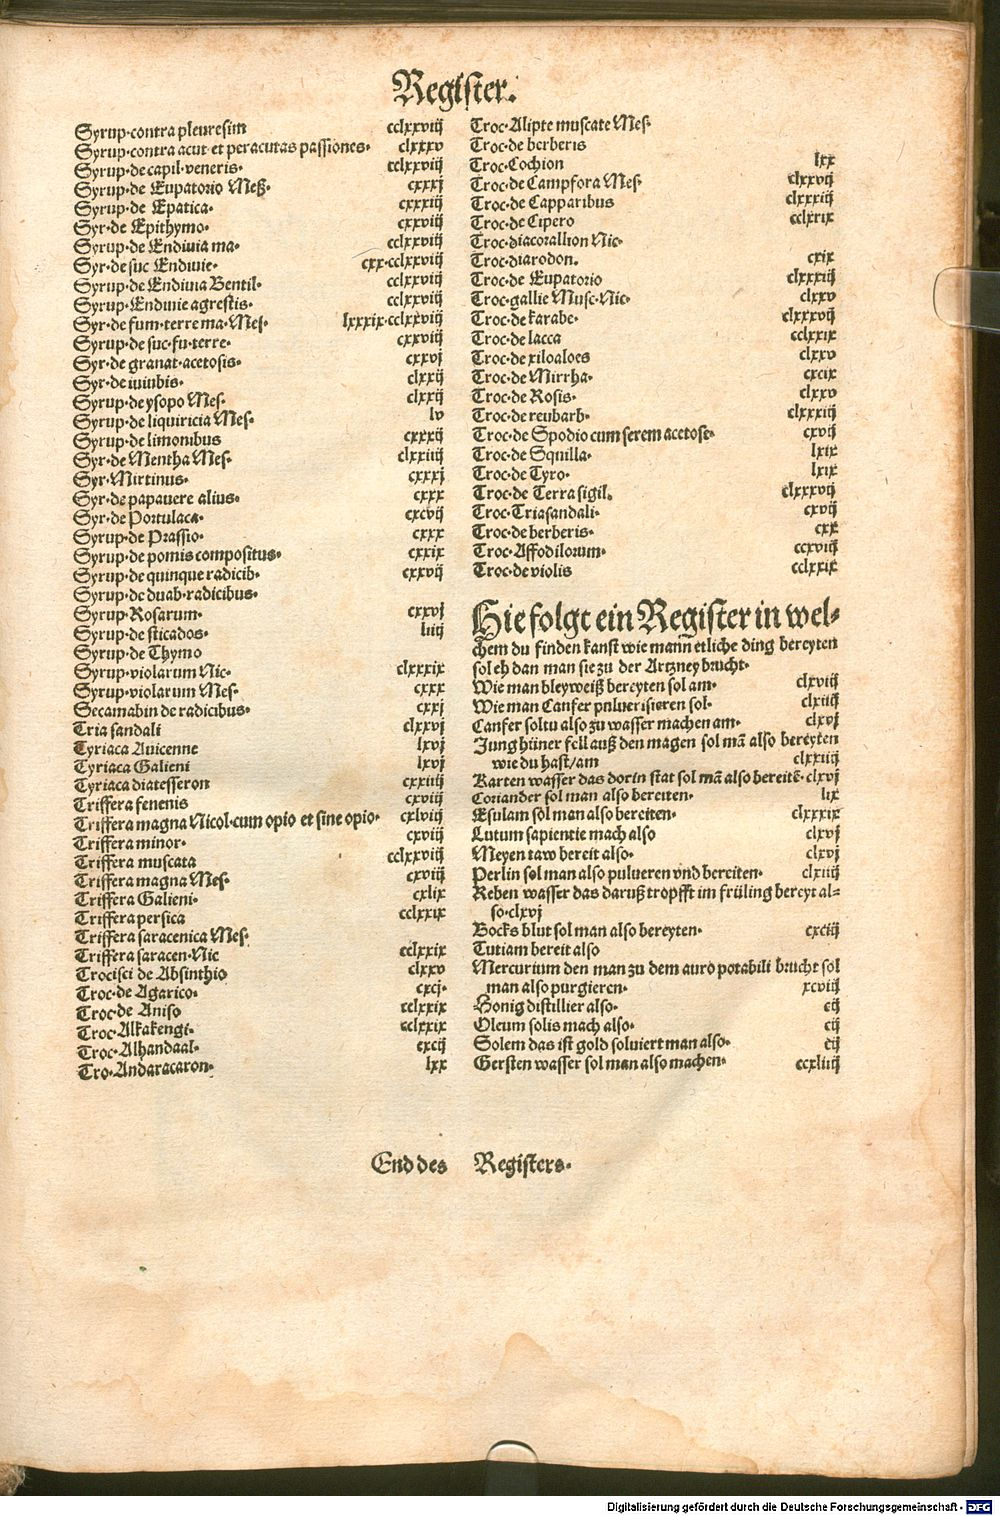 Register.
Syrup·contra pleuresim cclxxviij
Syrup·contra acut·et peracutas passiones· clxxxv
Syrup·de capil·veneris· cclxxviij
Syrup·de Eupatorio Meß· cxxxj
Syrup·de Epatica· cxxxiij
Syr·de Epithymo· cxxviij
Syrup·de Endiuia ma· cclxxviij
Syr·de suc Endiuie· cxx·cclxxviij
Syrup·de Endiuia Gentil· cclxxviij
Syrup·Endiuie agrestis· cclxxviij
Syr·de fum·terre ma·Mes· lxxxix·cclxxviij
Syrup·de suc·fu·terre· cxxviij
Syr·de granat·acetosis· cxxvj
Syr·de iuiubis· clxxij
Syrup·de ysopo Mes· clxxij
Syrup·de liquiricia Mes· lv
Syrup·de limonibus cxxxij
Syr·de Mentha Mes· clxxiiij
Syr·Mirtinus· cxxxj
Syr·de papauere alius· cxxx
Syr·de Portulaca· cxcvij
Syrup·de Prassio· cxxx
Syrup·de pomis compositus· cxxix
Syrup·de quinque radicib· cxxvij
Syrup·de duab·radicibus·
Syrup·Rosarum· cxxvj
Syrup·de sticados· liiij
Syrup·de Thymo
Syrup·violarum Nic· clxxxix
Syrup·violarum Mes· cxxx
Secamabin de radicibus· cxxj
Tria sandali clxxvj
Tyriaca Auicenne lxvj
Tyriaca Galieni lxvj
Tyriaca diatesseron cxxiiij
Triffera fenenis cxviij
Triffera magna Nicol·cum opio et sine opio· cxlviij
Triffera minor· cxviij
Triffera muscata cclxxviij
Triffera magna Mes· cxviij
Triffera Galieni· cxlix
Triffera persica cclxxix
Triffera saracenica Mes·
Triffera saracen·Nic cclxxix
Trocisci de Absinthio clxxv
Troc·de Agarico· cxcj·
Troc·de Aniso cclxxix
Troc·Alkakengi· cclxxix
Troc·Alhandaal· cxcij
Tro·Andaracaron· lxx
Troc·Alipte muscate Mes·
Troc·de berberis
Troc·Cochion lxx
Troc·de Campfora Mes· clxxvij
Troc·de Capparibus clxxxiij
Troc·de Cipero cclxxix
Troc·diacorallion Nic·
Troc·diarodon. cxix
Troc·de Eupatorio clxxxiij
Troc·gallie Musc·Nic· clxxv
Troc·de karabe· clxxxvij
Troc·de lacca cclxxix
Troc·de xiloaloes clxxv
Troc·de Mirrha· cxcix
Troc·de Rosis· clxxv
Troc·de reubarb· clxxxiij
Troc·de Spodio cum serem acetose· cxvij
Troc·de Squilla· lxix
Troc·de Tyro· lxix
Troc·de Terra sigil. clxxxvij
Troc·Triasandali· cxvij
Troc·de berberis· cxx
Troc·Affodilorum· ccxviij
Troc·de violis cclxxix
Hie folgt ein Register in wel-
chem du finden kanst wie mann etliche ding bereyten
sol eh dan man sie zu der Artzney brucht·
Wie man bleyweiß bereyten sol am· clxviij
Wie man Canfer puluerisieren sol· clxiiij
Canfer soltu also zu wasser machen am· clxvj
Jung hüner fell auß den magen sol mā also bereyten
wie du hast/am clxxiiij
Karten wasser das dorin stat sol mā also bereitē· clxvj
Coriander sol man also bereiten· lix
Esulam sol man also bereiten· clxxxix
Lutum sapientie mach also clxvj
Meyen taw bereit also· clxvj
Perlin sol man also pulueren vnd bereiten· clxiiij
Reben wasser das daruß tropfft im früling bereyt al-
so·clxvj
Bocks blut sol man also bereyten· cxciij
Tutiam bereit also
Mercurium den man zu dem auro potabili brucht sol
man also purgieren· xcviij
Honig distillier also· cij
Oleum solis mach also· cij
Solem das ist gold soluiert man also· cij
Gersten wasser sol man also machen· ccxliiij
End des Registers·
Digitalisierung gefördert durch die Deutsche Forschungsgemeinschaft - DFG